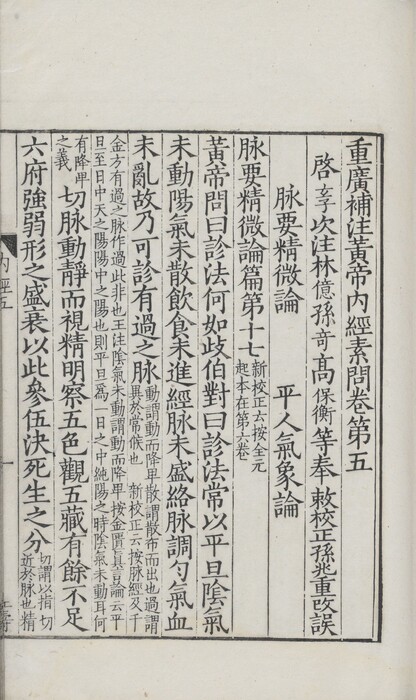 重廣補注黃帝內經素問卷第五
啓玄子次注林億孫奇高保衡等奉敕校正孫兆重改誤
脉要精微論　平人氣象論
脉要精微論篇第十七新校正云按全元起本在第六卷
黃帝問曰診法何如歧伯對曰診法常以平旦陰氣
未動陽氣未散飲食未進經脉未盛絡脉調勻氣血
未亂故乃可診有過之脉動謂動而降卑散謂散布而出也過謂異於常候也　新校正云按脉經及千
金方有過之脉作過此非也王注陰氣未動謂動而降卑按金匱真言論云平旦至日中天之陽陽中之陽也則平旦爲一日之中純陽之時陰氣未動耳何
有降卑之義切脉動靜而視精明察五色觀五藏有餘不足
六府強弱形之盛衰以此參伍決死生之分切謂以指切近於脉也精
內經五
一